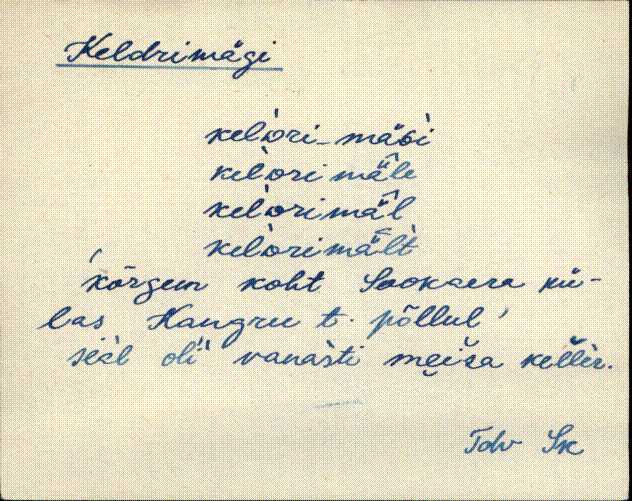 Keldrimägi
kelori-mäɢi
kelori mäle
kelorimäl
kelorimält
'kõrgem koht Sooksera kü-
las Kangru t. põllul'
seäl oli vanasti meiza keller.
Tdv Sk